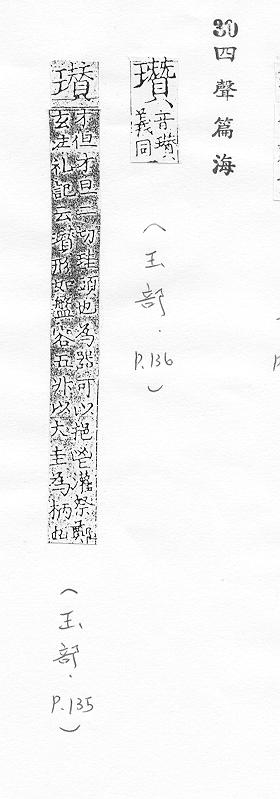 30
四聲篇海
瓚 音瓚義同
(玉部.P.136)
瓚 才但才旦二切珪頭也為器可以挹鬯灌祭鄭
玄注礼記云瓚形如盤容五升以大圭為柄也
(玉部.P.135)